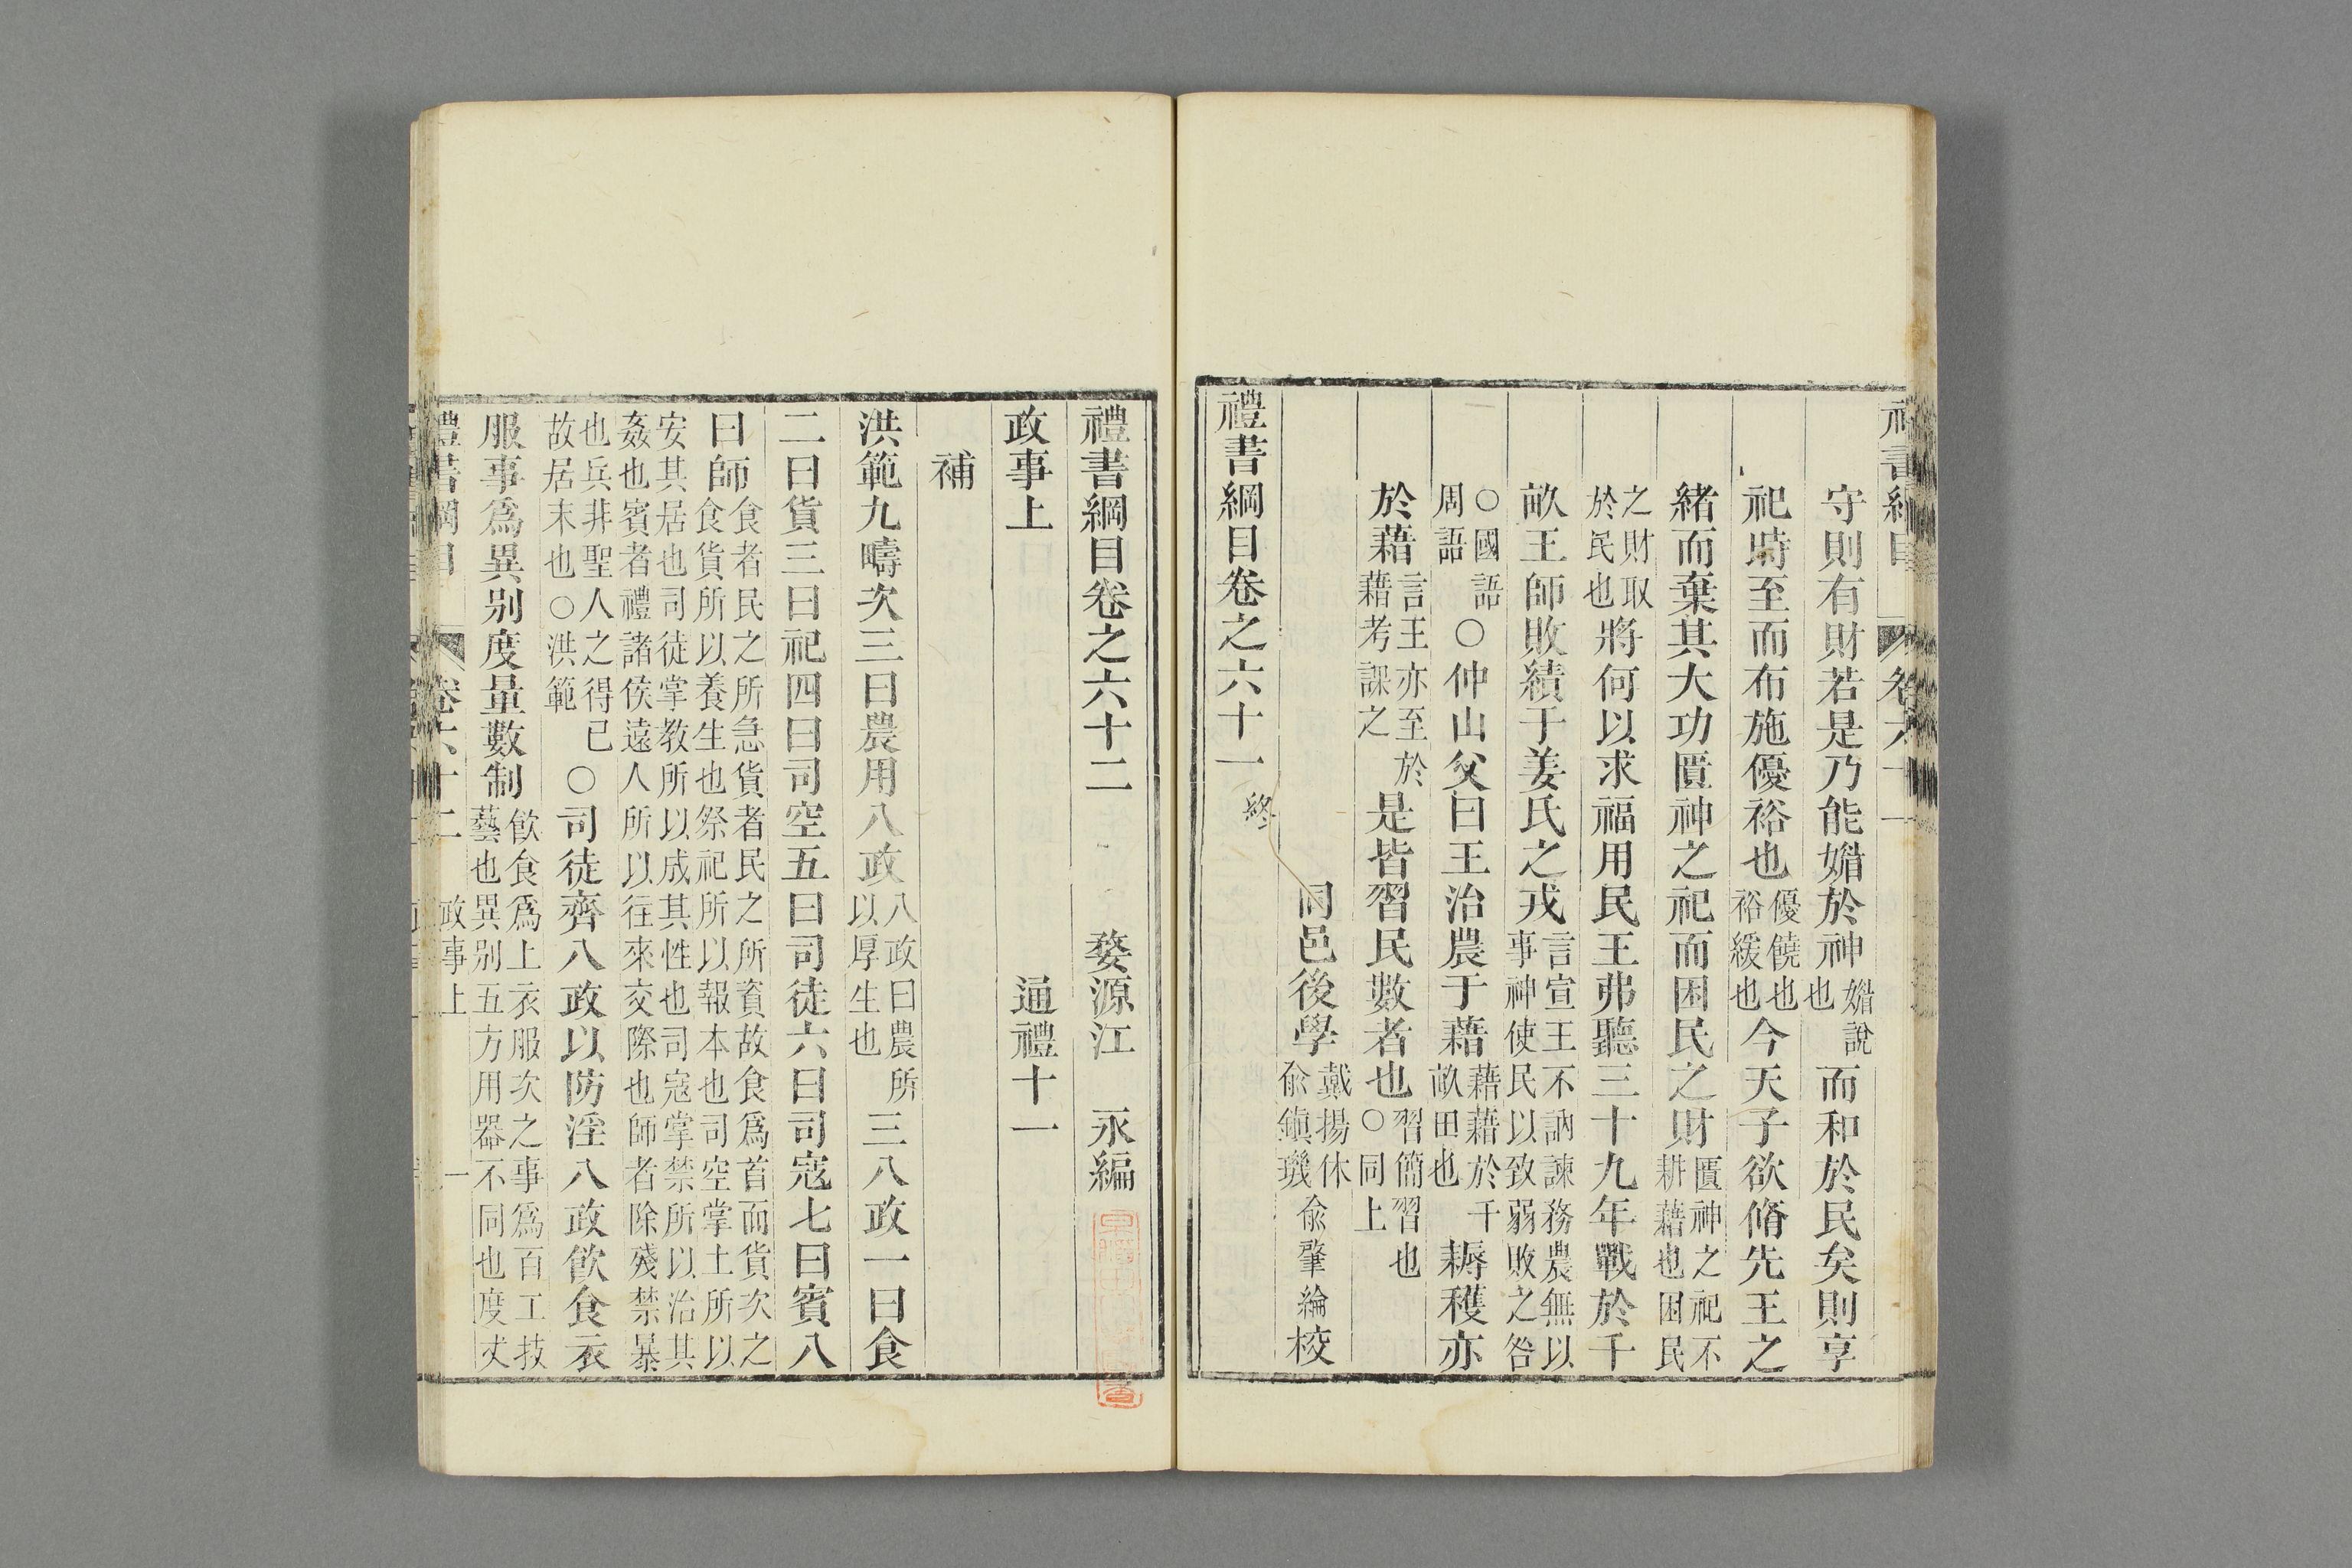 守則有財若是乃能媚於神媚說也而和於民矣則享
祀時至而布施優裕也優饒也裕緩也今天子欲脩先王之
緒而棄其大功匱神之祀而困民之財匱神之祀不耕藉也困民
之財取於民也將何以求福用民王弗聽三十九年戰於千
畝王師敗績于姜氏之戎言宣王不訥諫務農無以事神使民以致弱敗之咎
○國語周語○仲山父曰王治農于藉藉藉於千畝田也耨穫亦
於藉言王亦至於藉考課之是皆習民數者也習簡習也○同上
同邑後學戴揚休俞鎮璣俞肇綸校
禮書綱目卷之六十一終
禮書綱目卷之六十二 婺源江 永編
政事上 通禮十一
補
洪範九疇次三曰農用八政八政曰農所以厚生也三八政一曰食
二曰貨三曰祀四曰司空五曰司徒六曰司寇七曰賓八
曰師食者民之所急貨者民之所資故食爲首而貨次之食貨所以養生也祭祀所以報本也司空掌土所以
安其居也司徒掌教所以成其性也司寇掌禁所以治其姦也賓者禮諸侯遠人所以往來交際也師者除殘禁暴
也兵非聖人之得已故居末也○洪範○司徒齊八政以防淫八政飲食衣
服事爲異别度量數制飲食爲上衣服次之事爲百工技藝也異别五方用器不同也度丈
禮書綱目 卷六十二 政事上 一